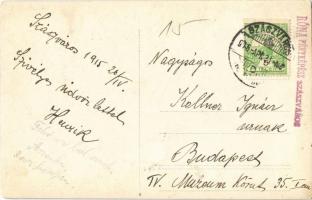 Szászváros 1915 20/IV
Szívélyes üdvözlettel
Henrik
15
Nagyságos
Kellner Ignácz
urnak
Budapest
IV. Muzeum Körut 35. I em
SZÁSZVÁROS
RÓNA FÉNYKÉPÉSZ
SZÁSZVÁROS